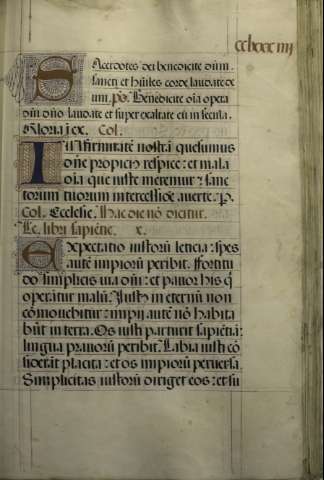 Sacerdotes dei benedicite dūm.
sancti et hūiles corde laudate de
um. ps. Benedicite oīa opera
dūi dūo laudate et super exaltate eū in secula.
Gloria in ex. Col.
Infirmitatē nostrā quesumus
dn̄e propicius respice: et mala
oīa que iuste meremur: sanc
torum tuorum intercessiōe averte. p.
Col. Ecclesie. Hac die nō dicitur.
Lc. libri sapiēcie. x.
Expectatio iustorū leticia: spes
aute impiorū peribit. Fortitu
do simplicis via dūi: et pavor his q̄
operātur malū. Iustus in eternū non
cōmovebitur: impii autē nō habita
būt in terra. Os iusti parturit sapiētiā:
lingua pravorū peribit. Labia iusti cō
siderāt placita: et os impiorū perversa.
Simplicitas iustorū diriget eos: et su